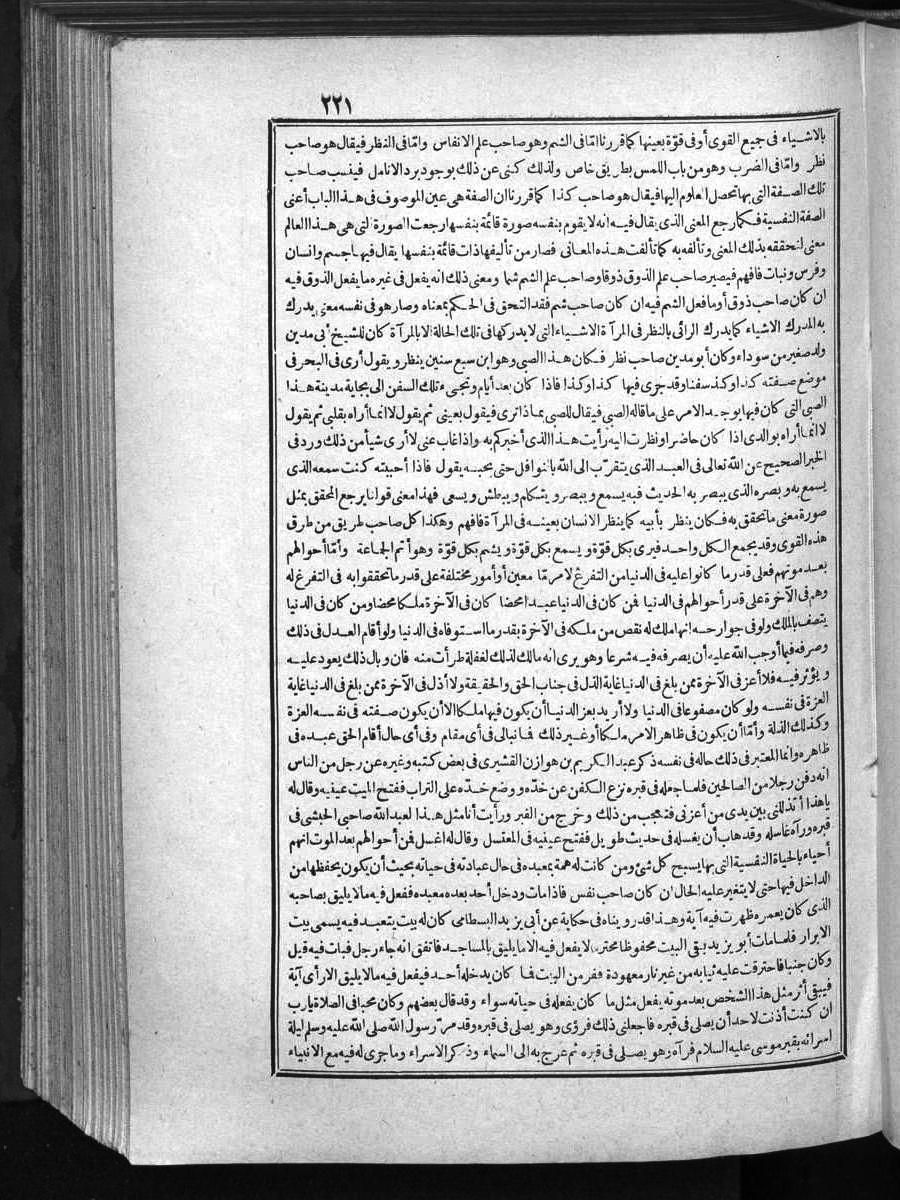 ٢٢١
بالاشياء فى جميع القوى أوفى قوّة بعينها كما قررنا امّا فى الشم وهو صاحب علم الانفاس وامّا فى النظر فيقال هو صاحب
نظر وامّا فى الضرب وهو من باب اللمس بطريق خاص ولذلك كنى عن ذلك بوجود برد الانامل فينسب صاحب
تلك الصفة التى بها تحصل العلوم اليها فيقال هو صاحب كذا كما قررنا ان الصفة هى عين الموصوف فى هذا الباب أعنى
الصفة النفسية فكما رجع المعنى الذى يقال فيه انه لا يقوم بنفسه صورة قائمة بنفسها رجعت الصورة التى هى هذا العالم
معنى لتحققه بذلك المعنى وتألفه به كما تألفت هذه المعانى فصار من تأليفها ذات قائمة بنفسها يقال فيها جسم وانسان
وفرس ونبات فافهم فيصير صاحب علم الذوق ذوقا وصاحب علم الشم شما ومعنى ذلك انه يفعل فى غيره ما يفعل الذوق فيه
ان كان صاحب ذوق أو ما فعل الشم فيه ان كان صاحب شم فقد التحق فى الحكم بمعناه وصار هو فى نفسه معنى يدرك
به المدرك الاشياء كما يدرك الرائى بالنظر فى المرآة الاشياء التى لا يدركها فى تلك الحالة الا بالمرآة كان للشيخ أبى مدين
ولد صغير من سوداء وكان أبو مدين صاحب نظر فكان هذا الصبى وهو ابن سبع سنين ينظر ويقول أرى فى البحر فى
موضع صفته كذا وكذا سفنا وقد جرى فيها كذا وكذا فاذا كان بعد أيام وتجىء تلك السفن الى بجاية مدينة هذا
الصبى التى كان فيها يوجد الامر على ما قاله الصبى فيقال للصبى بماذا ترى فيقول بعينى ثم يقول لا انما أراه بقلبى ثم يقول
لا انما أراه بوالدى اذا كان حاضرا ونظرت اليه رأيت هذا الذى أخبركم به واذا غاب عنى لا أرى شيأ من ذلك ورد فى
الخبر الصحيح عن الله تعالى فى العبد الذى يتقرّب الى الله بالنوافل حتى يحبه يقول فاذا أحببته كنت سمعه الذى
يسمع به وبصره الذى يبصر به الحديث فبه يسمع ويبصر ويتكلم ويبطش ويسعى فهذا معنى قولنا يرجع المحقق بمثل
صورة معنى ما تحقق به فكان ينظر بأبيه كما ينظر الانسان بعينه فى المرآة فافهم وهكذا كل صاحب طريق من طرق
هذه القوى وقد يجمع الكل واحد فيرى بكل قوّة ويسمع بكل قوّة ويشم بكل قوّة وهو أتم الجماعة وأمّا أحوالهم
بعد موتهم فعلى قدر ما كانوا عليه فى الدنيا من التفرغ لامر مّا معين أو أمور مختلفة على قدر ما تحققوا به فى التفرغ له
وهم فى الآخرة على قدر أحوالهم فى الدنيا فمن كان فى الدنيا عبدا محضا كان فى الآخرة ملكا محضا ومن كان فى الدنيا
يتصف بالملك ولو فى جوارحه انها ملك له نقص من ملكه فى الآخرة بقدر ما استوفاه فى الدنيا ولو أقام العدل فى ذلك
وصرفه فيما أوجب الله عليه أن يصرفه فيه شرعا وهو يرى انه مالك لذلك لغفلة طرأت منه فان وبال ذلك يعود عليه
ويؤثر فيه فلا أعز فى الآخرة ممن بلغ فى الدنيا غاية الذل فى جناب الحق والحقيقة ولا أذل فى الآخرة ممن بلغ فى الدنيا غاية
العزة فى نفسه ولو كان مصفوعا فى الدنيا ولا أريد بعز الدنيا أن يكون فيها ملكا الا أن يكون صفته فى نفسه العزة
وكذلك الذلة وأمّا أن يكون فى ظاهر الامر ملكا أو غير ذلك فما نبالى فى أى مقام وفى أى حال أقام الحق عبده فى
ظاهره وانما المعتبر فى ذلك حاله فى نفسه ذكر عبد الكريم بن هوازن القشيرى فى بعض كتبه وغيره عن رجل من الناس
انه دفن رجلا من الصالحين فلما جعله فى قبره نزع الكفن عن خدّه ووضع خدّه على التراب ففتح الميت عينيه وقال له
ياهذا أتذللنى بين يدى من أعزنى فتعجب من ذلك وخرج من القبر ورأيت أنا مثل هذا لعبد الله صاحبى الحبشى فى
قبره ورآه غاسله وقد هاب أن يغسله فى حديث طويل ففتح عينيه فى المغتسل وقال له اغسل فمن أحوالهم بعد الموت انهم
أحياء بالحياة النفسية التى بها يسبح كل شئ ومن كانت له همة بمعبده فى حال عبادته فى حياته بحيث أن يكون يحفظها من
الداخل فيها حتى لا يتغير عليه الحال ان كان صاحب نفس فاذا مات ودخل أحد بعده معبده ففعل فيه ما لا يليق بصاحبه
الذى كان يعمره ظهرت فيه آية وهذا قد رويناه فى حكاية عن أبى يزيد البسطامى كان له بيت يتعبد فيه يسمى بيت
الابرار فلما مات أبو يزيد بقى البيت محفوظا محترما لا يفعل فيه الا ما يليق بالمساجد فاتفق انه جاء رجل فبات فيه قيل
وكان جنبا فاحترقت عليه ثيابه من غير نار معهودة ففر من البيت فما كان يدخله أحد فيفعل فيه ما لا يليق الا رأى آية
فيبقى أثر مثل هذا الشخص بعد موته يفعل مثل ما كان يفعله فى حياته سواء وقد قال بعضهم وكان محبا فى الصلاة يارب
ان كنت أذنت لاحد أن يصلى فى قبره فاجعلنى ذلك فرؤى وهو يصلى فى قبره وقد مرّ رسول الله صلى الله عليه وسلم ليلة
اسرائه بقبر موسى عليه السلام فرآه وهو يصلى فى قبره ثم عرج به الى السماء وذكر الاسراء وما جرى له فيه مع الانبياء